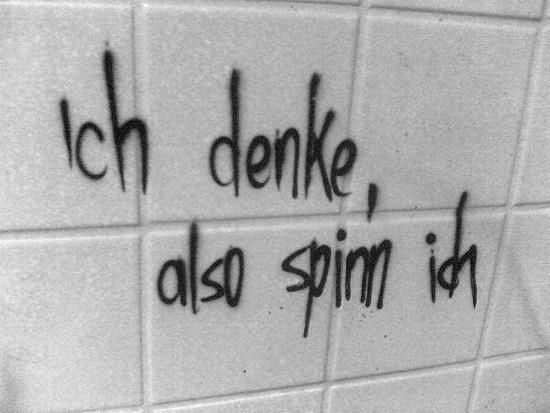 Ich denke,
also spinn ich